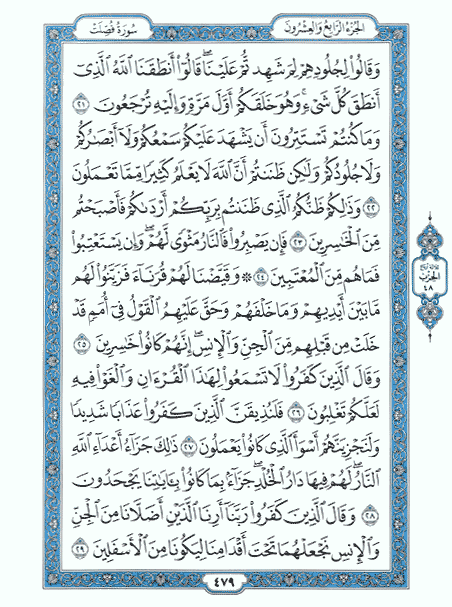 الجزء الرابع والعشرون
سورة فصلت
وَقَالُوا۟ لِجُلُودِهِمْ لِمَ شَهِدتُّمْ عَلَيْنَا ۖ قَالُوٓا۟ أَنطَقَنَا ٱللَّهُ ٱلَّذِىٓ
أَنطَقَ كُلَّ شَىْءٍ وَهُوَ خَلَقَكُمْ أَوَّلَ مَرَّةٍ وَإِلَيْهِ تُرْجَعُونَ ٢١
وَمَا كُنتُمْ تَسْتَتِرُونَ أَن يَشْهَدَ عَلَيْكُمْ سَمْعُكُمْ وَلَآ أَبْصَـٰرُكُمْ
وَلَا جُلُودُكُمْ وَلَـٰكِن ظَنَنتُمْ أَنَّ ٱللَّهَ لَا يَعْلَمُ كَثِيرًا مِّمَّا تَعْمَلُونَ
٢٢ وَذَٰلِكُمْ ظَنُّكُمُ ٱلَّذِى ظَنَنتُم بِرَبِّكُمْ أَرْدَىٰكُمْ فَأَصْبَحْتُم
مِّنَ ٱلْخَـٰسِرِينَ ٢٣ فَإِن يَصْبِرُوا۟ فَٱلنَّارُ مَثْوًى لَّهُمْ ۖ وَإِن يَسْتَعْتِبُوا۟
فَمَا هُم مِّنَ ٱلْمُعْتَبِينَ ٢٤ ۞ وَقَيَّضْنَا لَهُمْ قُرَنَآءَ فَزَيَّنُوا۟ لَهُم
مَّا بَيْنَ أَيْدِيهِمْ وَمَا خَلْفَهُمْ وَحَقَّ عَلَيْهِمُ ٱلْقَوْلُ فِىٓ أُمَمٍ قَدْ
خَلَتْ مِن قَبْلِهِم مِّنَ ٱلْجِنِّ وَٱلْإِنسِ ۖ إِنَّهُمْ كَانُوا۟ خَـٰسِرِينَ ٢٥
وَقَالَ ٱلَّذِينَ كَفَرُوا۟ لَا تَسْمَعُوا۟ لِهَـٰذَا ٱلْقُرْءَانِ وَٱلْغَوْا۟ فِيهِ
لَعَلَّكُمْ تَغْلِبُونَ ٢٦ فَلَنُذِيقَنَّ ٱلَّذِينَ كَفَرُوا۟ عَذَابًا شَدِيدًا
وَلَنَجْزِيَنَّهُمْ أَسْوَأَ ٱلَّذِى كَانُوا۟ يَعْمَلُونَ ٢٧ ذَٰلِكَ جَزَآءُ أَعْدَآءِ ٱللَّهِ
ٱلنَّارُ ۖ لَهُمْ فِيهَا دَارُ ٱلْخُلْدِ ۖ جَزَآءًۢ بِمَا كَانُوا۟ بِـَٔايَـٰتِنَا يَجْحَدُونَ
٢٨ وَقَالَ ٱلَّذِينَ كَفَرُوا۟ رَبَّنَآ أَرِنَا ٱلَّذَيْنِ أَضَلَّانَا مِنَ ٱلْجِنِّ
وَٱلْإِنسِ نَجْعَلْهُمَا تَحْتَ أَقْدَامِنَا لِيَكُونَا مِنَ ٱلْأَسْفَلِينَ ٢٩
الحزب
٤٨
٤٧٩